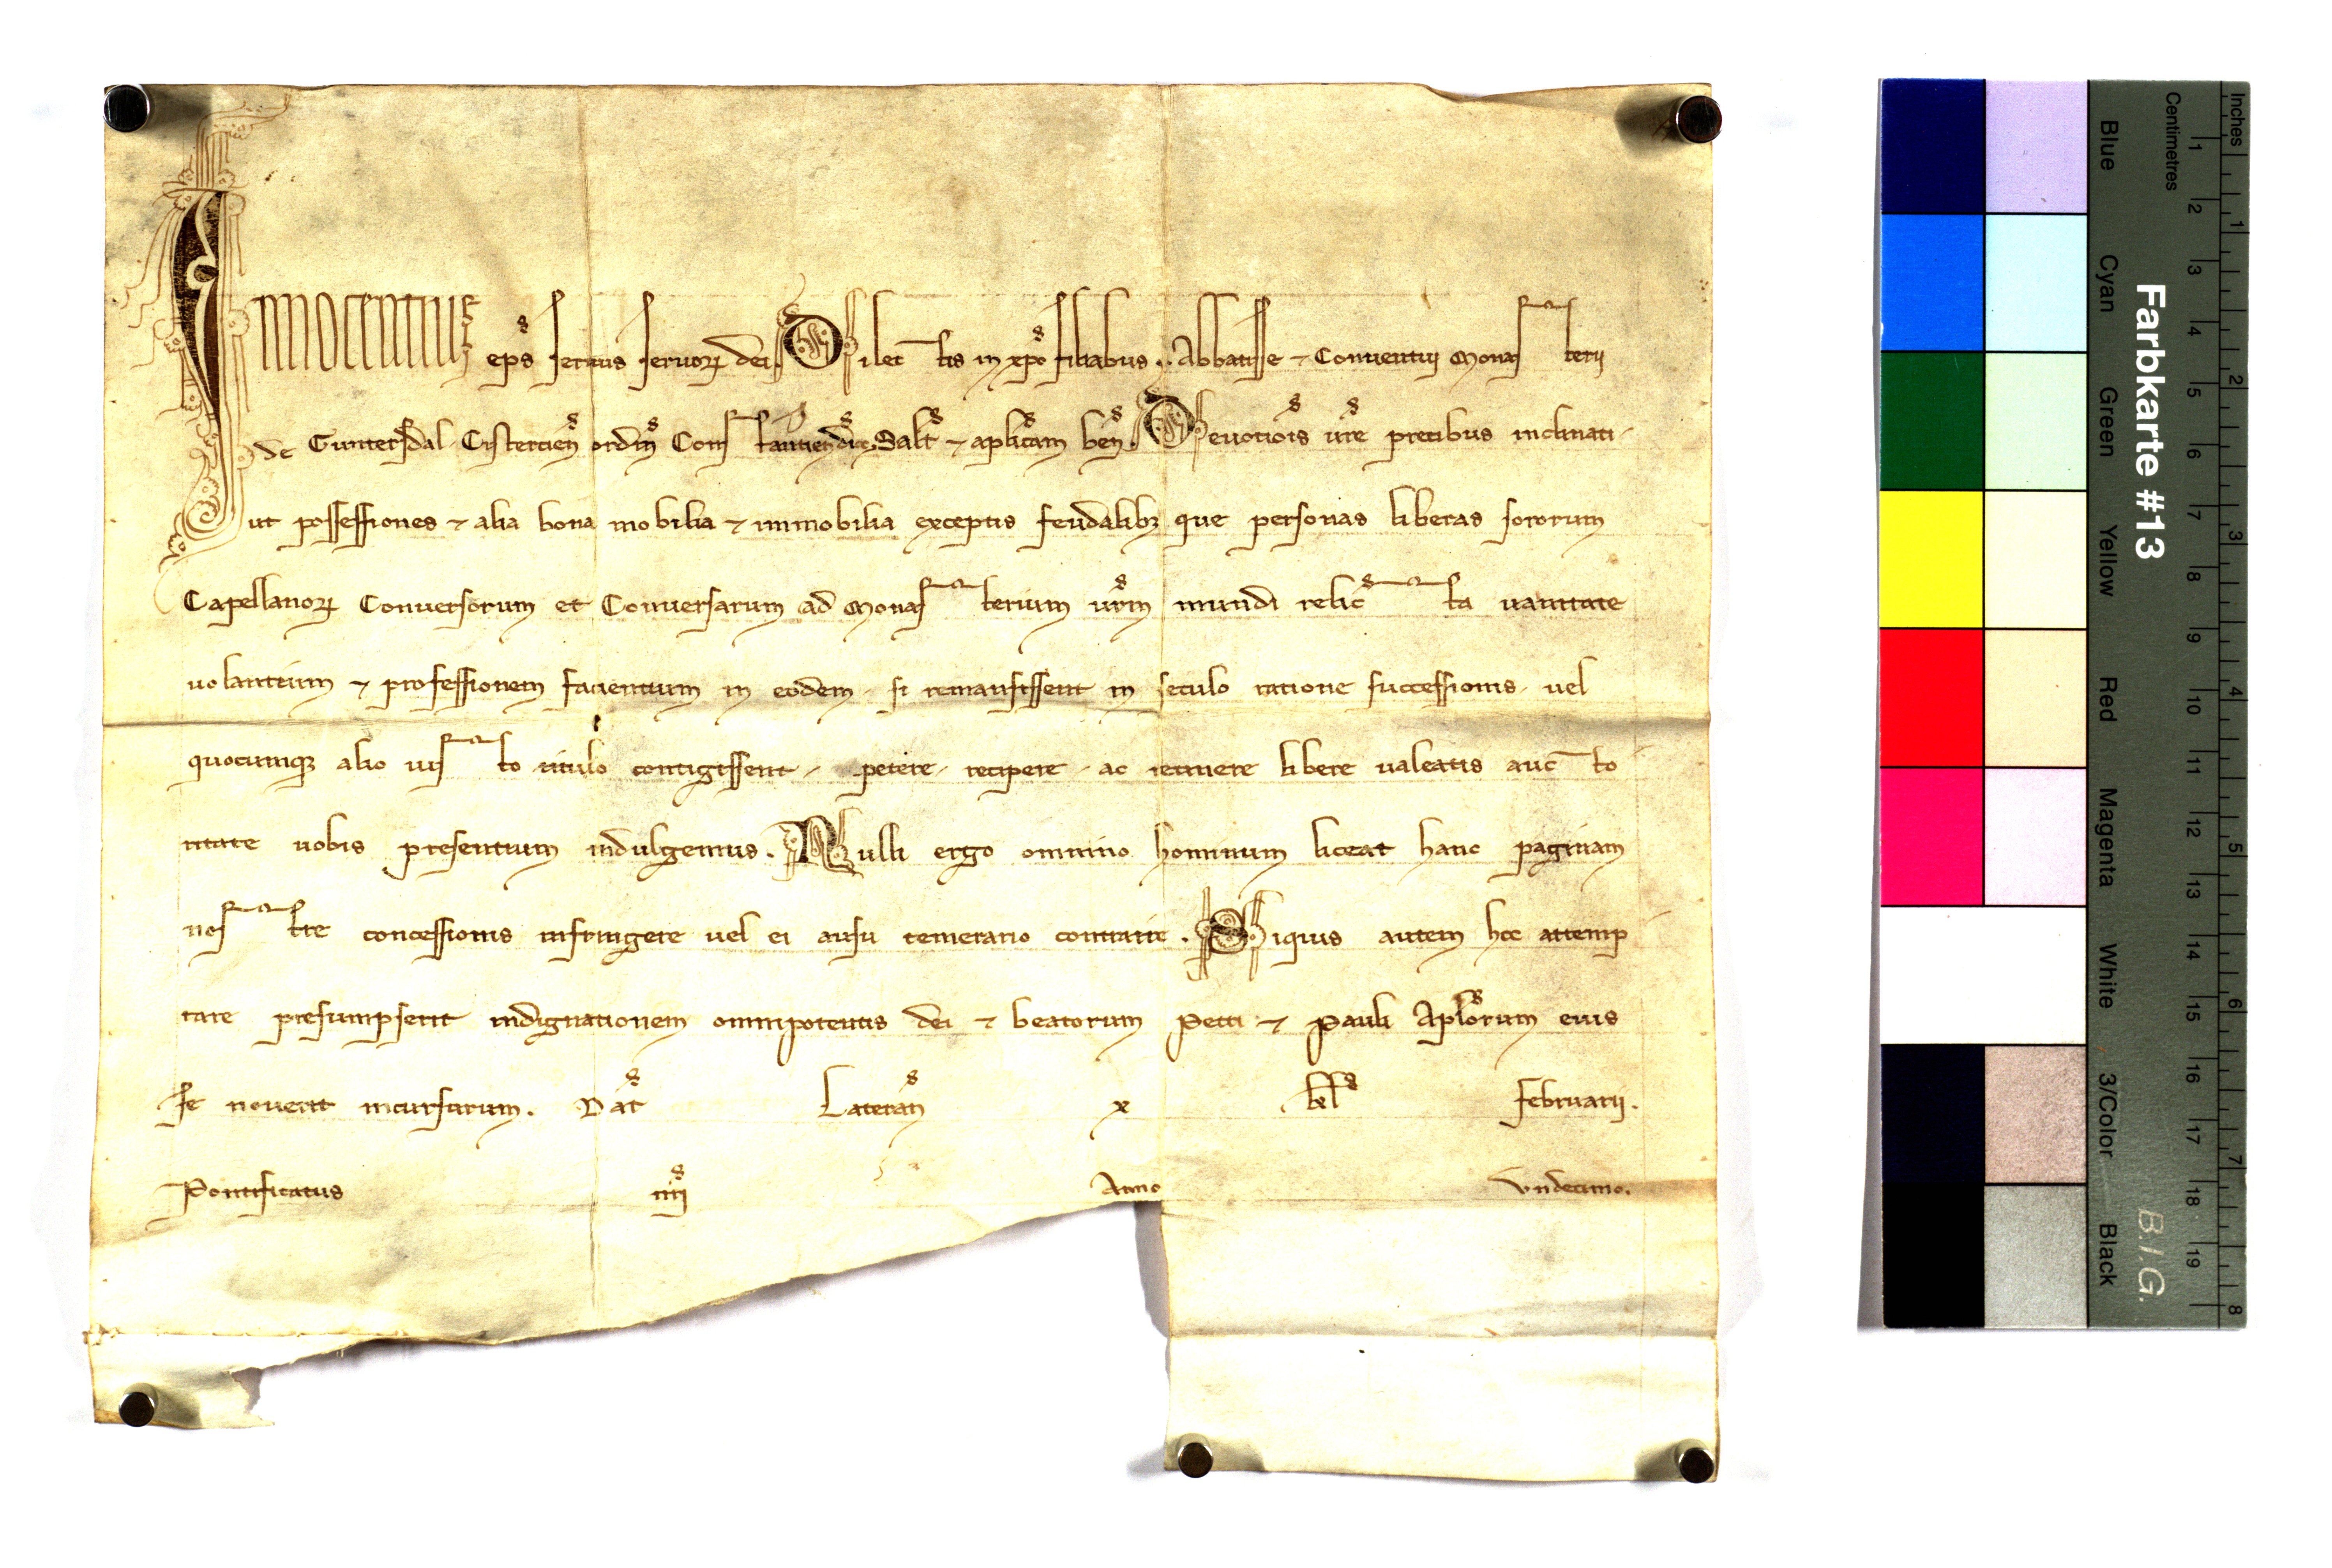 Innocentius ep̄s servus servoꝝ dei. Dilec tis in xp̄o filiabus .. Abbatisse ⁊ Conventui Monas terii
de Guntersdal Cistercien̄ ordin̄ Cons tantien̄ dioc̄. Salt̄ ⁊ ap̄licam ben̄. Devotiois v̄re precibus inclinati.
ut possessiones ⁊ alia bona mobilia ⁊ immobilia exceptis feudalibꝫ que personas liberas sororum
Capellanoꝝ Conversorum et Conversarum ad Monas terium vr̄m mundi relic ta vanitate
volantium ⁊ professionem facientium in eodem. si remansissent in seculo ratione successionis. vel
quocumqꝫ alio ius to titulo contigissent, petere, recipere, ac retinere libere valeatis auc to
ritate vobis presentium indulgemus. Nulli ergo omnino hominum liceat hanc paginam
nos tre concessionis infringere vel ei ausu temerario contraire. Siquis autem hoc attemp
tare presumpserit indignationem omnipotentis dei ⁊ beatorum Petri ⁊ Pauli Apl̄orum eius
se noverit incursurum. Dat̄ Lateran̄ x kl̄ Februarii.
Pontificatus nr̄i Anno Undecimo.
Farbkarte #13
B.I.G.
Inches 1 2 3 4 5 6 7 8
Centimetres 1 2 3 4 5 6 7 8 9 10 11 12 13 14 15 16 17 18 19
Blue Cyan Green Yellow Red Magenta White 3/Color Black